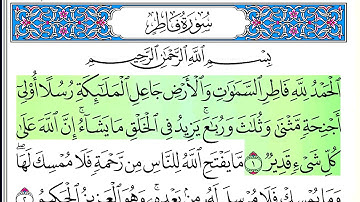 سُورَةُ فَاطِرٍ
بِسْمِ ٱللَّهِ ٱلرَّحْمَٰنِ ٱلرَّحِيمِ
ٱلْحَمْدُ لِلَّهِ فَاطِرِ ٱلسَّمَٰوَٰتِ وَٱلْأَرْضِ جَاعِلِ ٱلْمَلَٰٓئِكَةِ رُسُلًا أُو۟لِىٓ
أَجْنِحَةٍ مَّثْنَىٰ وَثُلَٰثَ وَرُبَٰعَ ۚ يَزِيدُ فِى ٱلْخَلْقِ مَا يَشَآءُ ۚ إِنَّ ٱللَّهَ عَلَىٰ
كُلِّ شَىْءٍ قَدِيرٌ ١ مَّا يَفْتَحِ ٱللَّهُ لِلنَّاسِ مِن رَّحْمَةٍ فَلَا مُمْسِكَ لَهَا ۖ
وَمَا يُمْسِكْ فَلَا مُرْسِلَ لَهُۥ مِنۢ بَعْدِهِۦ ۚ وَهُوَ ٱلْعَزِيزُ ٱلْحَكِيمُ ٢